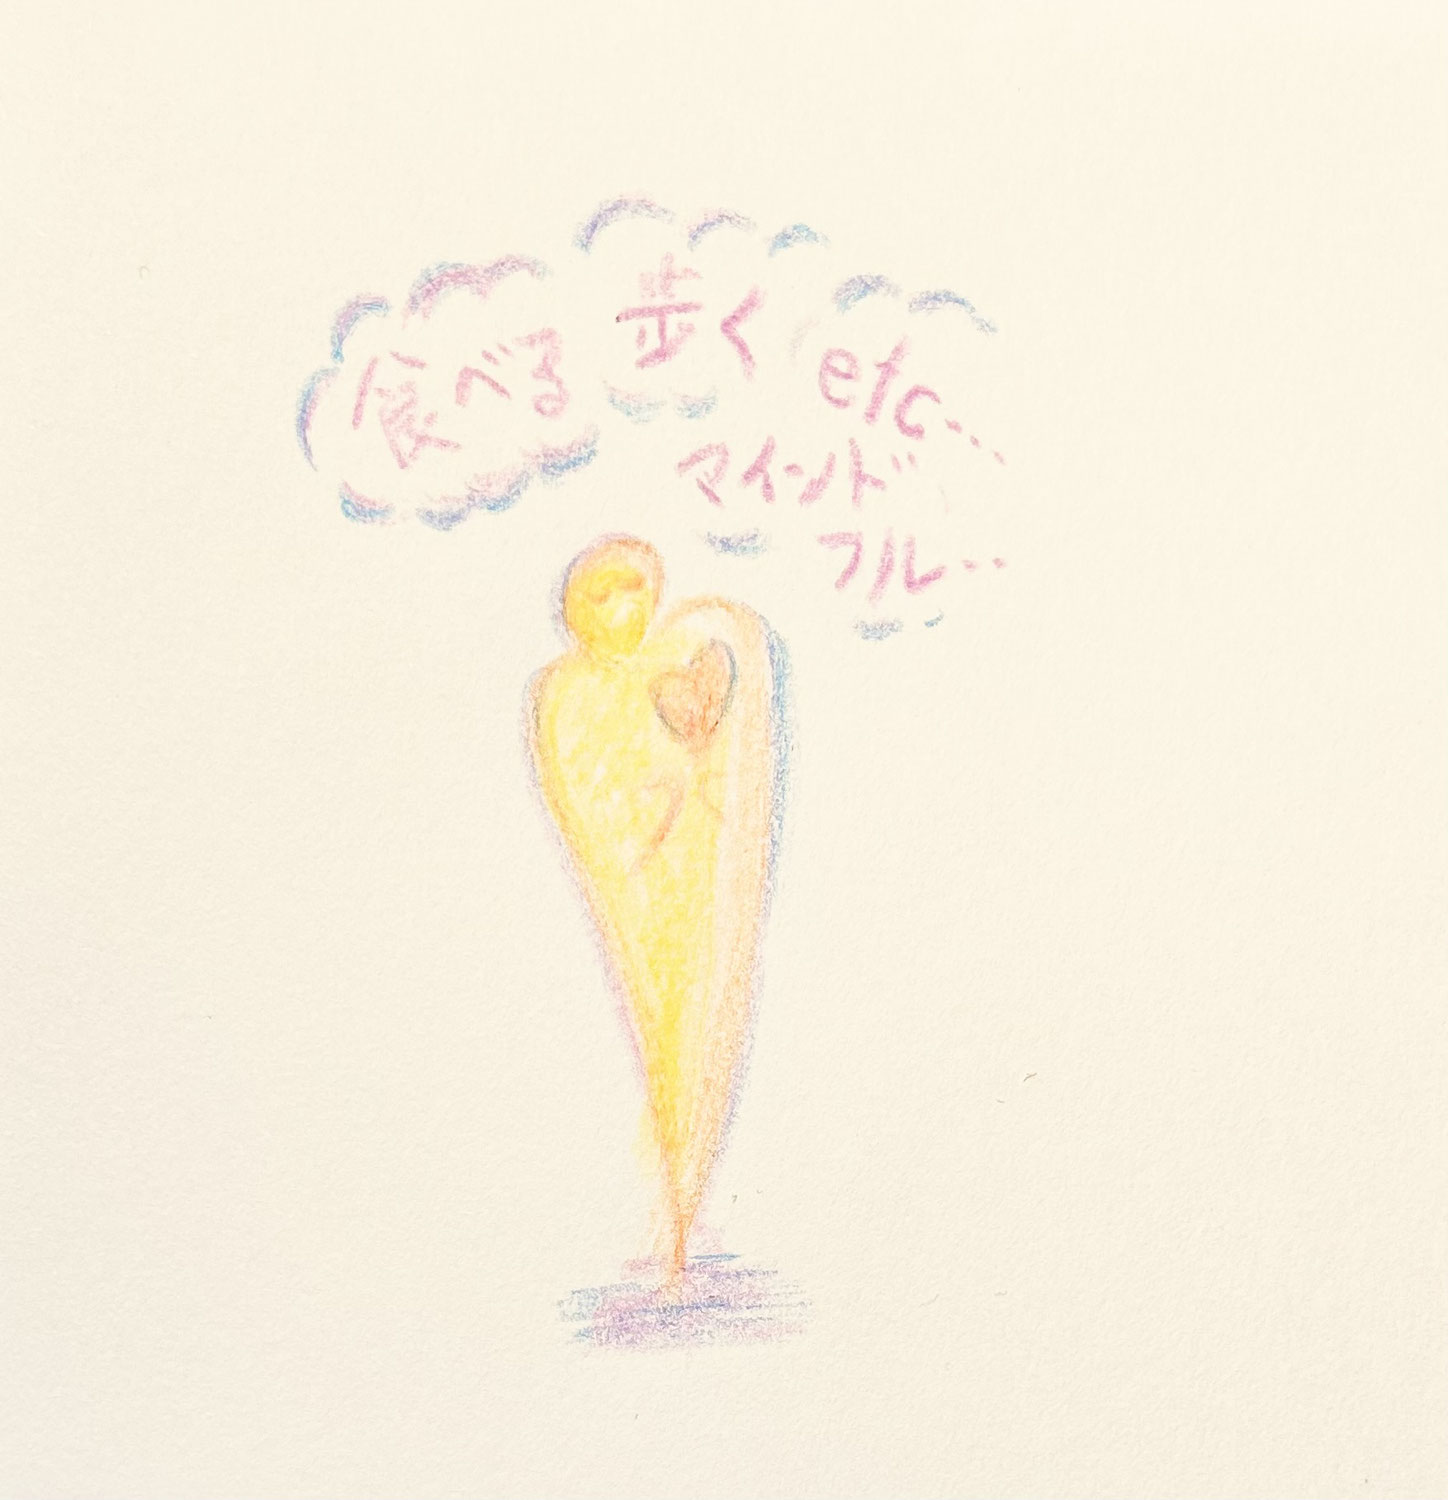 食べる
歩く
etc...
マインド
フル...